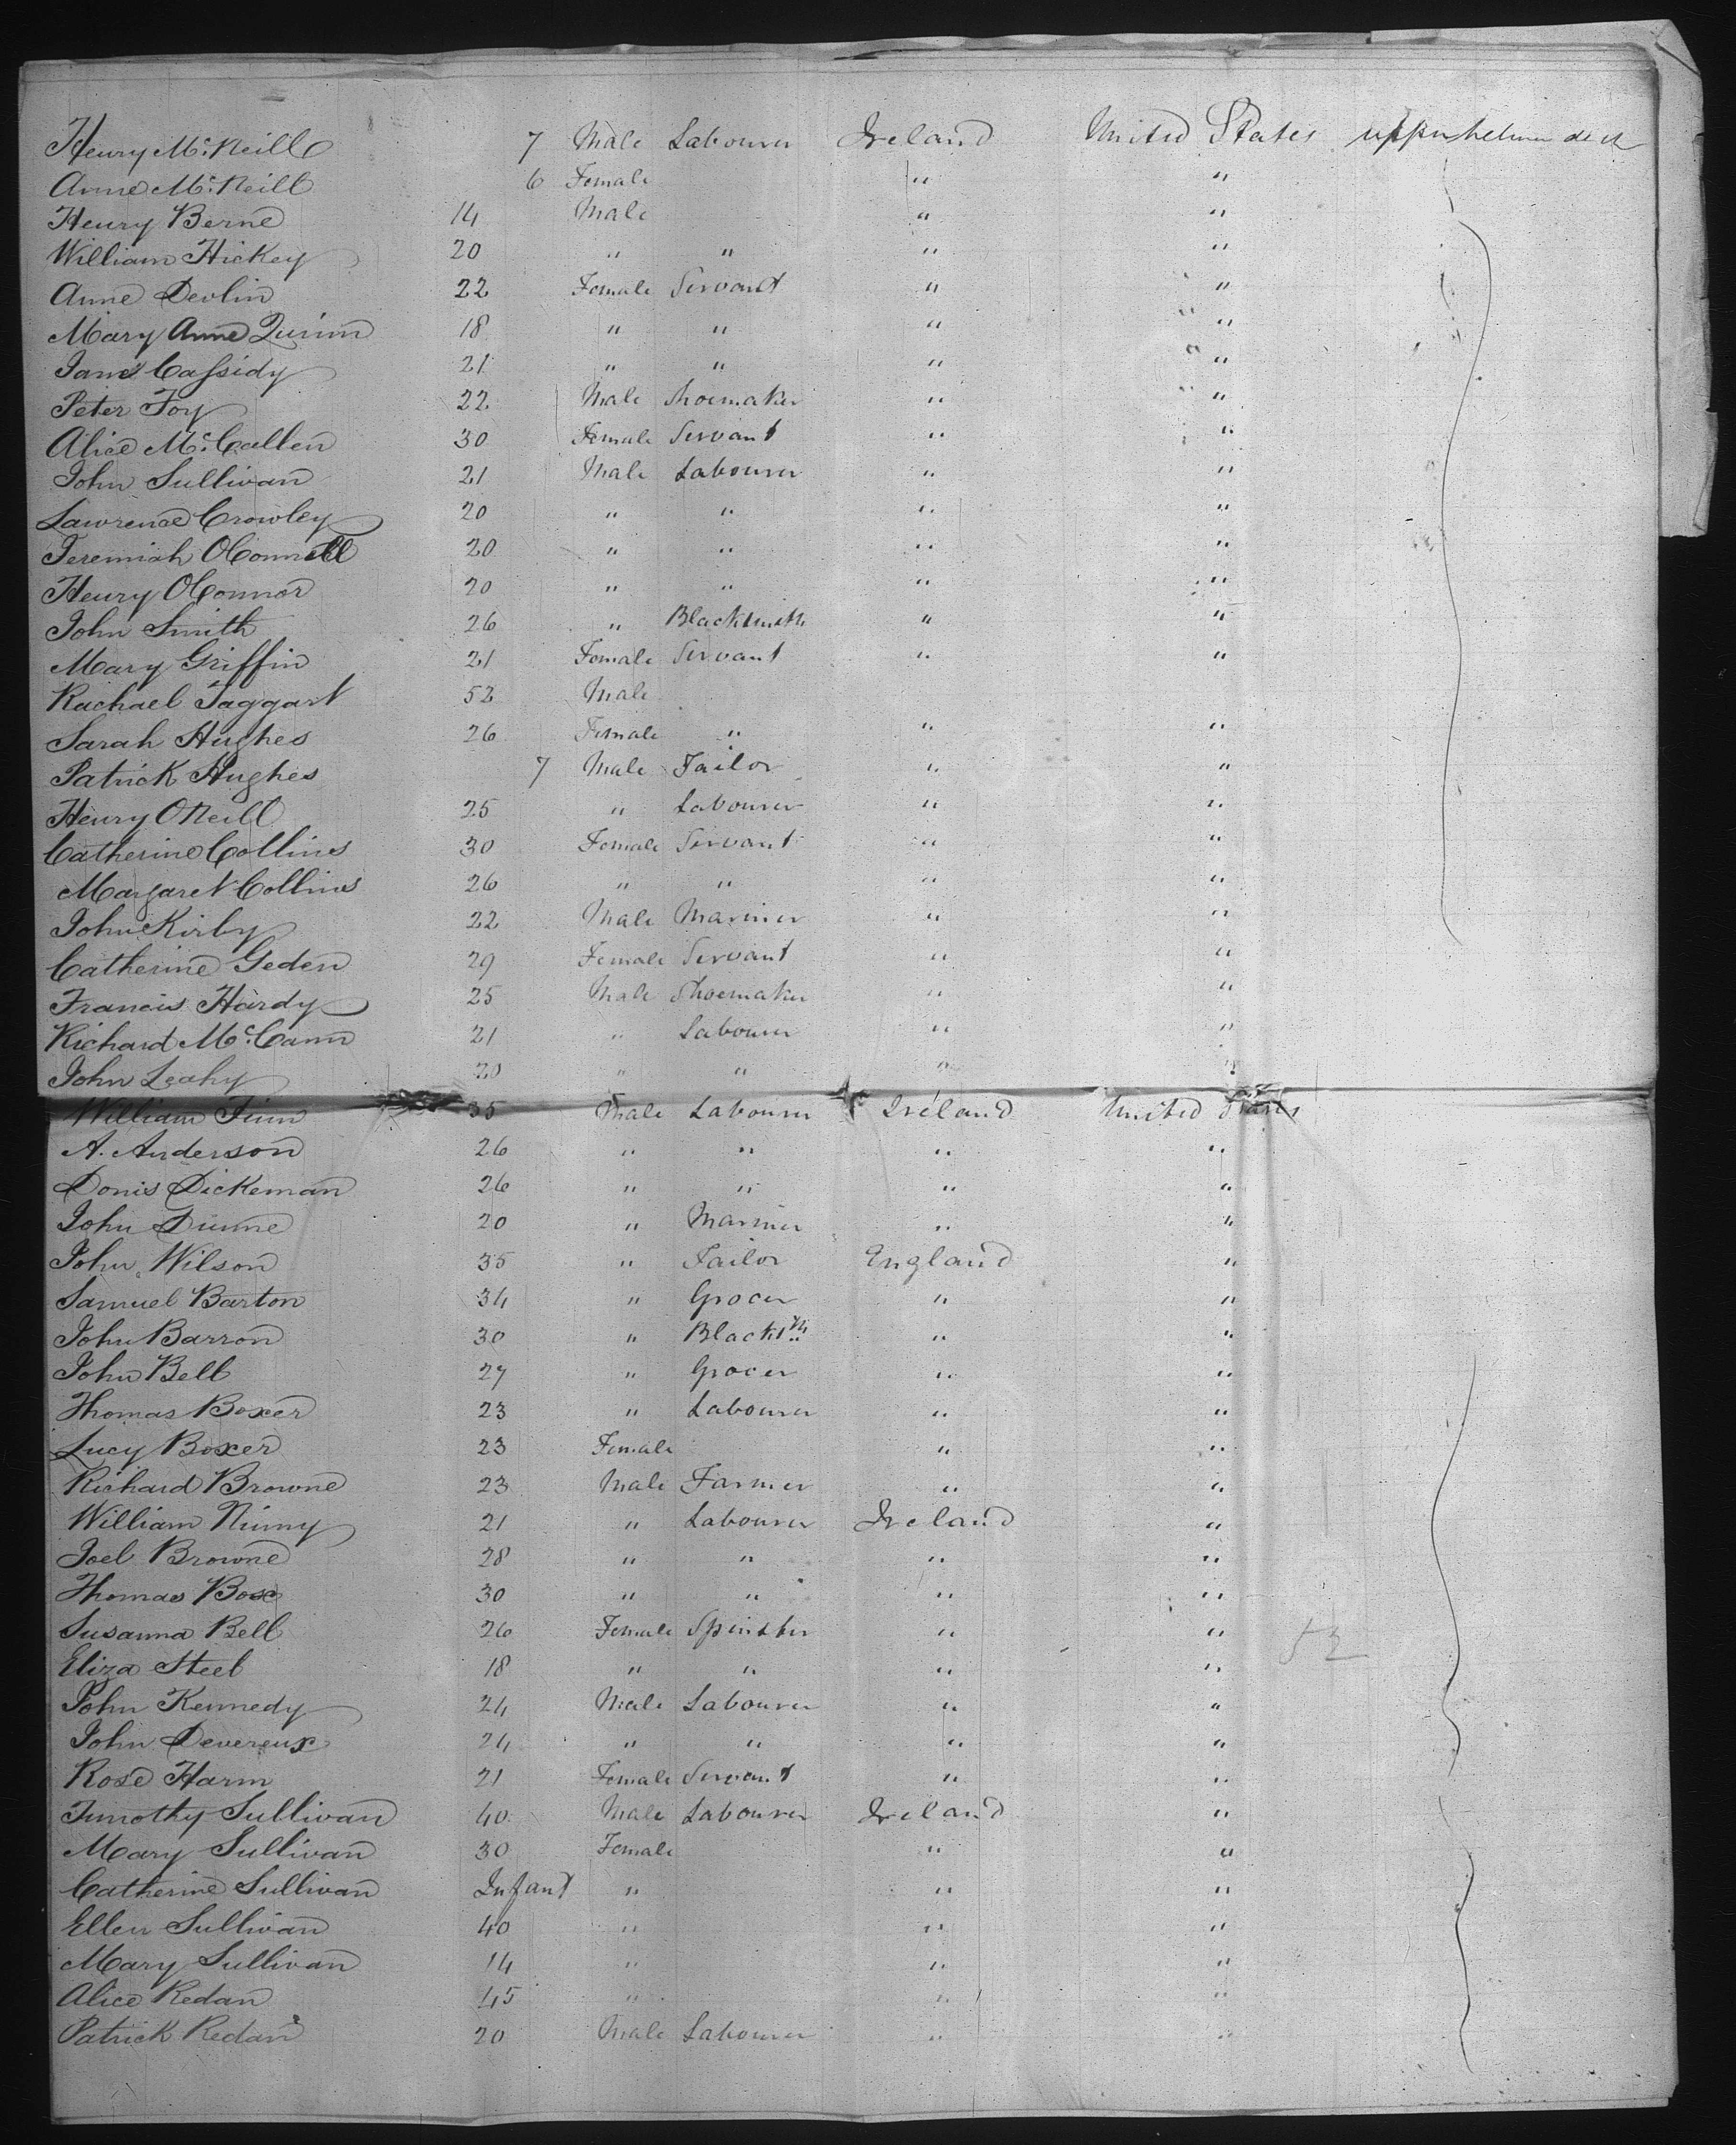 Henry McNeill 7 Male Labourer Ireland United States upper between deck
Anne McNeill 6 Female " "
Henry Berne 14 Male " "
William Hickey 20 " " " "
Anne Devlin 22 Female Servant " "
Mary Anne Quinn 18 " " " "
Jane Cassidy 21 " " " "
Peter Foy 22 Male Shoemaker " "
Alice McCallen 30 Female Servant " "
John Sullivan 21 Male Labourer " "
Lawrence Crowley 20 " " " "
Jeremiah OConnell 20 " " " "
Henry OConnor 20 " " " "
John Smith 26 " Blacksmith " "
Mary Griffin 21 Female Servant " "
Rachael Taggart 52 Male
Sarah Hughes 26 Female " " "
Patrick Hughes 7 Male Tailor " "
Henry ONeill 25 " Labourer " "
Catherine Collins 30 Female Servant " "
Margaret Collins 26 " " " "
John Kirby 22 Male Mariner " "
Catherine Geden 29 Female Servant " "
Francis Hardy 25 Male Shoemaker " "
Richard McCann 21 " Labourer " "
John Leahy 20 " " " "
William Finn 35 Male Labourer Ireland United States
A. Anderson 26 " " " "
Donis Dickeman 26 " " " "
John Dunne 20 " Mariner " "
John Wilson 35 " Tailor England "
Samuel Barton 34 " Grocer " "
John Barron 30 " Blacksth " "
John Bell 27 " Grocer " "
Thomas Boxer 23 " Labourer " "
Lucy Boxer 23 Female " "
Richard Browne 23 Male Farmer " "
William Ninny 21 " Labourer Ireland "
Joel Browne 28 " " " "
Thomas Box 30 " " " "
Susanna Bell 26 Female Spinster " " 52
Eliza Steel 18 " " " "
John Kennedy 24 Male Labourer " "
John Devereux 24 " " " "
Rose Harm 21 Female Servant " "
Timothy Sullivan 40 Male Labourer Ireland "
Mary Sullivan 30 Female " "
Catherine Sullivan Infant " " "
Ellen Sullivan 40 " " "
Mary Sullivan 14 " " "
Alice Redan 45 " " "
Patrick Redan 20 Male Labourer " "